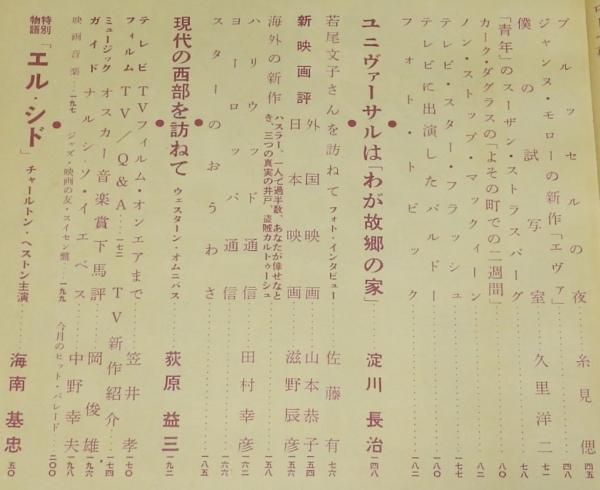 ブルッセルの夜 糸見偲
ジャンヌ・モローの新作「エヴァ」 四八
僕の試写室 久里洋二 七一
「青年」のスーザン・ストラスバーグ 七八
カーク・ダグラスの「よその町での二週間」 八二
ノン・ストップ・マックイーン 一〇〇
テレビ・スター・フラッシュ 一七七
テレビに出演したバルドー 一八〇
フォト・トピック 一八二
ユニヴァーサルは「わが故郷の家」 淀川長治 四八
若尾文子さんを訪ねて フォト・インタビュー 佐藤有 七六
新映画評 外国映画 山本恭子 一五四
日本映画 滋野辰彦 一五五
海外の新作 ハスラー、一人で過半数、あなたが倖せなとき、三つの真実の井戸、盗賊カルトゥーシュ 一五八
ハリウッド通信 田村幸彦 一六二
ヨーロッパ通信 一六六
スターのおうわさ 一八五
現代の西部を訪ねて ウェスターン・オムニバス 荻原益三 一九二
テレビTVフィルム・オンエアまで 笠井孝 一七〇
フィルムTV/Q&A 一七二 TV新作紹介 一七四
ミュージック オスカー音楽賞下馬評 岡俊雄 一九六
ガイド ナルシソ・イエペス 中野幸夫 一九八
映画音楽 一九七 ジャズ・映画の友・スイセン盤 一九九 今月のヒット・パレード 二〇〇
特別物語 「エル・シド」 チャールトン・ヘストン主演 海南基忠 五〇